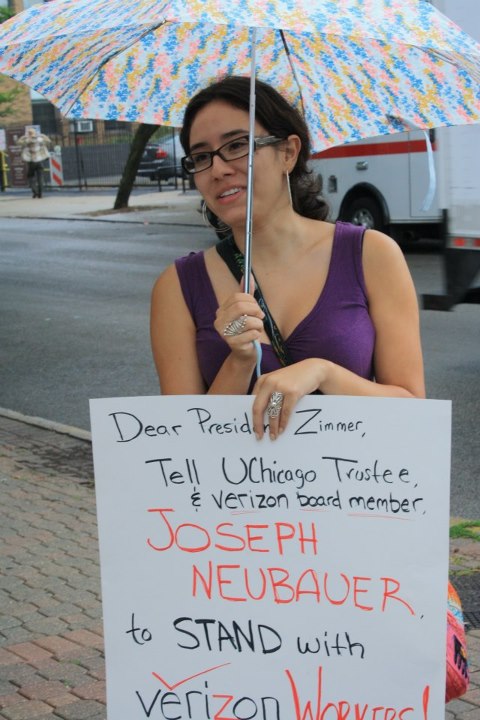 Dear President Zimmer,
Tell UChicago Trustee,
& verizon board member,
JOSEPH
NEUBAUER,
to STAND with
verizon Workers!